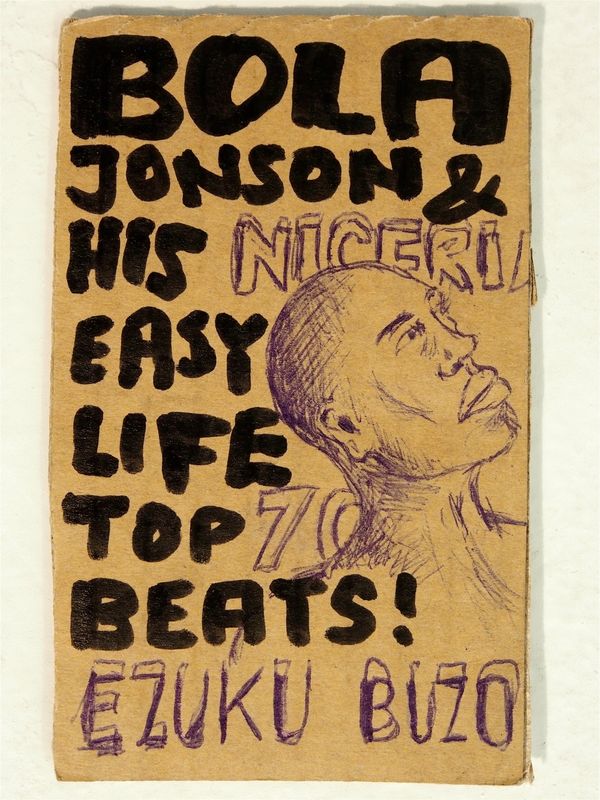 BOLA
JONSON &
HIS NIGERIA
EASY
LIFE
TOP 70
BEATS!
EZUKU BUZO